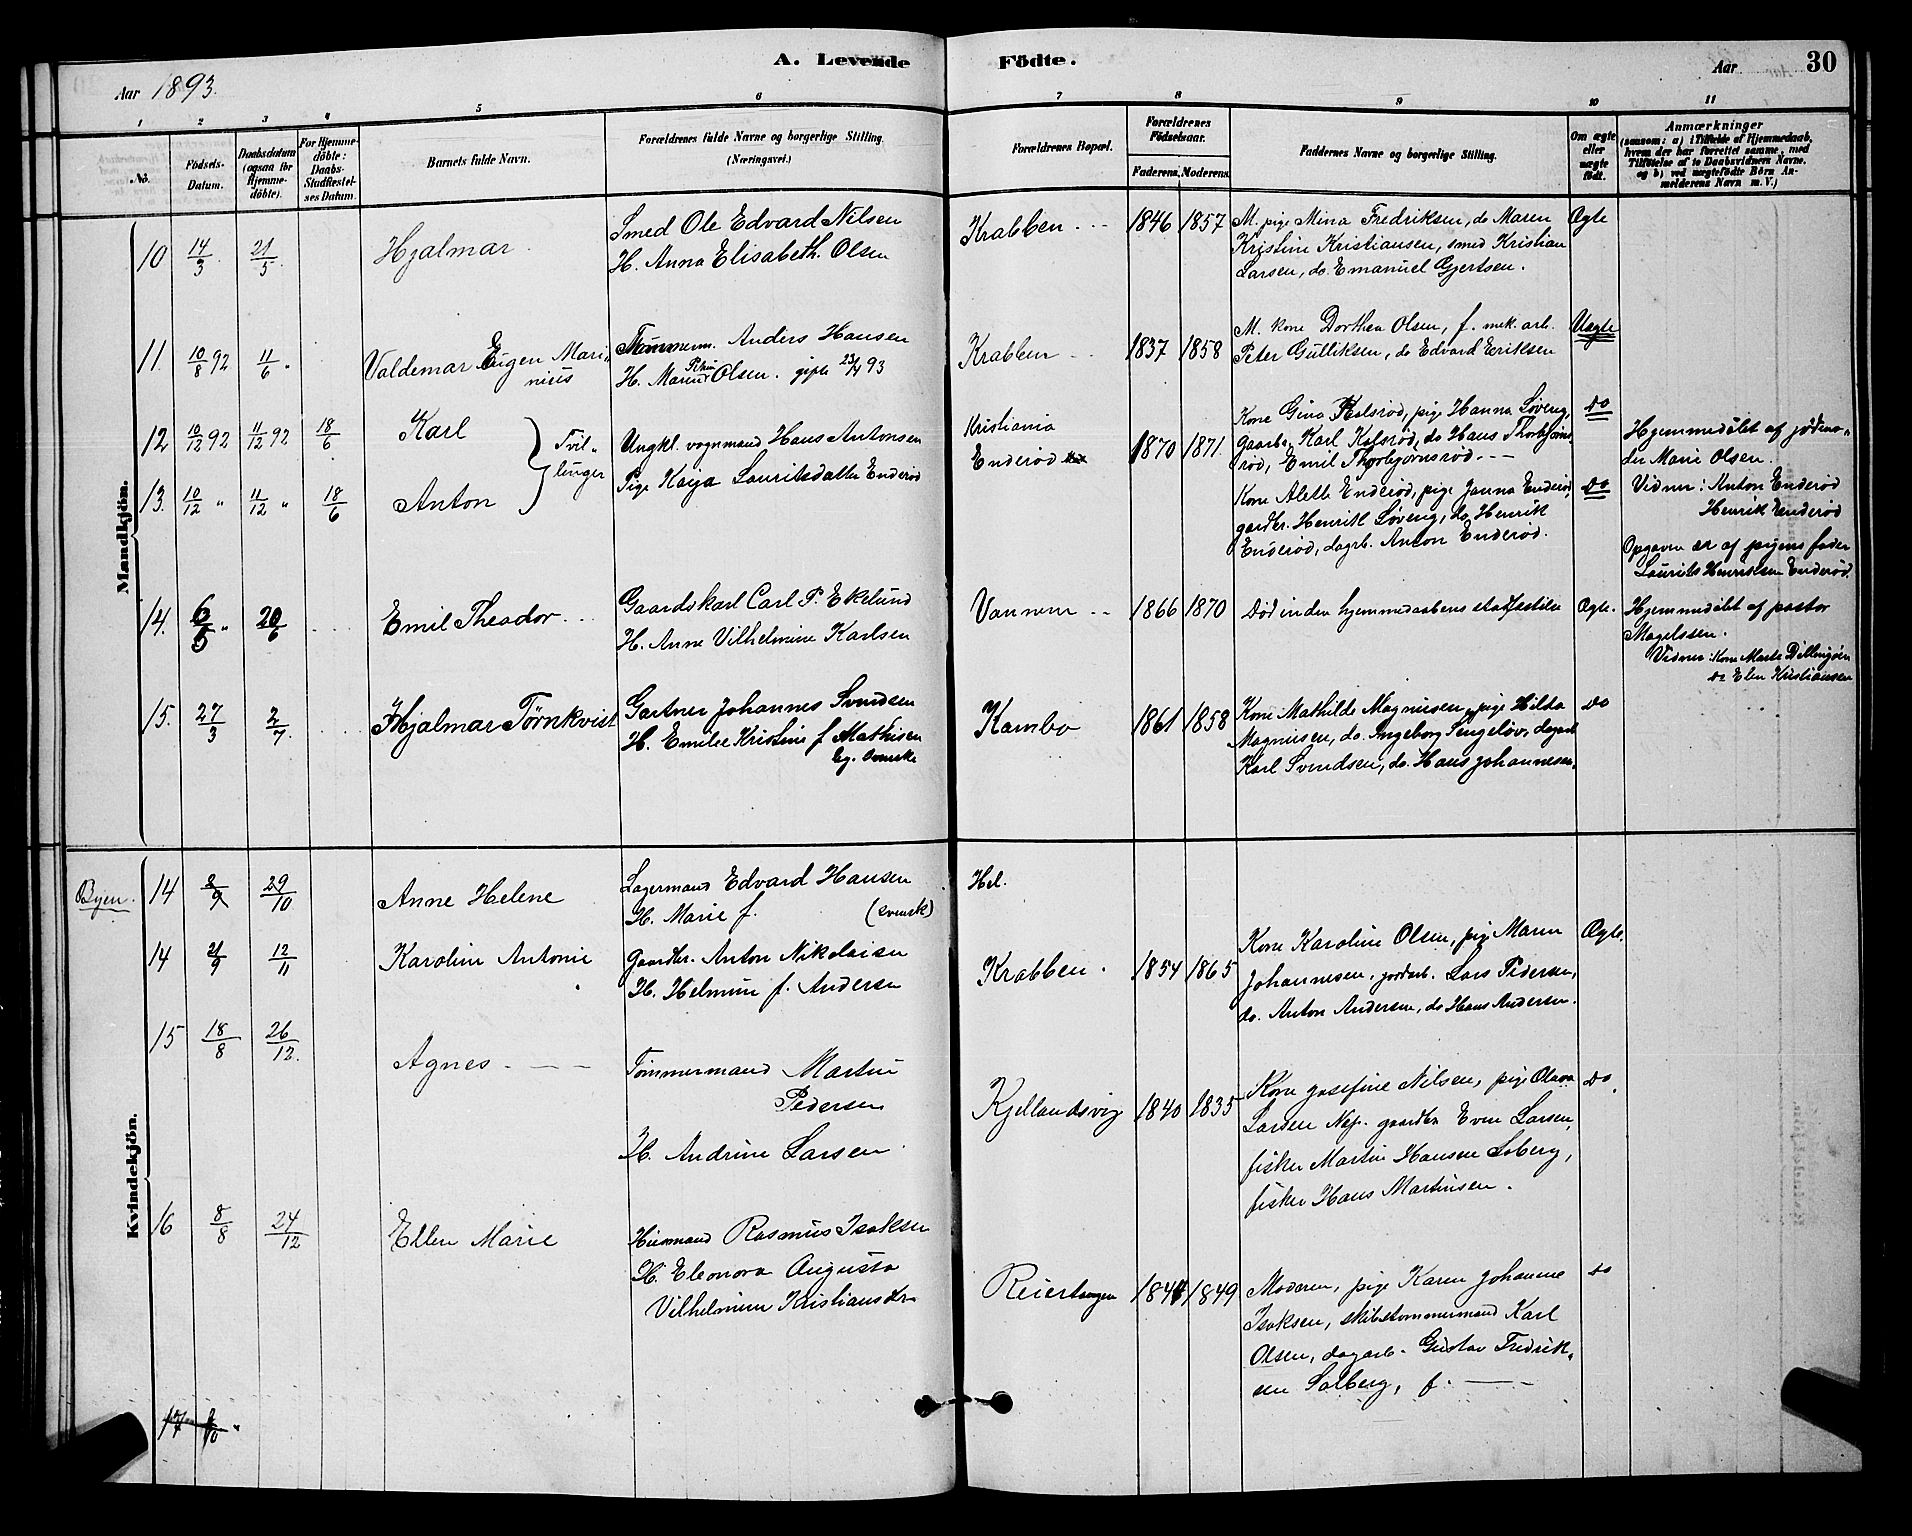 A. Levende Födte.
Aar 1893.
Aar
30
1 2 3 4 5 6 7 8 9 10 11
No.
Födsels-
Datum.
Daabsdatum
(ogsaa for
Hjemme-
döbte).
For Hjemme-
döbte:
Daabs-
Stadfæstel-
ses Datum.
Barnets fulde Navn.
Forældrenes fulde Navne og borgerlige Stilling.
(Næringsvei.)
Forældrenes Bopæl.
Forældrenes
Födselsaar.
Faderens. Moderens.
Faddernes Navne og borgerlige Stilling.
Om ægte
eller
uægte
födt.
Anmærkninger
(saasom: a) i Tilfælde af Hjemmedaab,
hvem der har forrettet samme, med
Tilföielse af to Daabsvidners Navne,
og b) ved uægtefödte Börn An-
melderens Navn m. V.)
Mandkjön.
10 14/3 21/5. Hjalmar
Smed Ole Edvard Nilsen
H. Anna Elisabeth Olsen
Krabben 1846 1857
M. pige Mina Fredriksen, do Maren
Kristine Kristiansen, smed Kristian
Larsen, do. Emanuel Gjertsen.
Ægte
11. 10/8 92 11/6 " Valdemar Eugen Mari-
nius
Tømmerm. Anders Hansen
H. Maren Olsen. gift 23/4 93
Krabben 1837 1858
M. kone Dorthea Olsen, f. mek. arb.
Peter Gulliksen, do Edvard Eriksen
Uægte
12 10/12 92 11/12 92 18/6 Karl
13. 10/12 " 11/12 " 18/6 Anton
Tvil-
linger
Ungkl. vognmand Hans Antonsen
Pige Kaija Lauritsdatter Enderød
Kristiania
Enderød
1870 1871.
Kone Gina Kolsrød, pige Hanna Løveng,
gaardb. Karl Kolsrød, do Hans Thorbjørns-
rød, Emil Thorbjørnsrød
do
Kone Alette Enderød, pige Janna Enderød
gardbr. Henrik Løveng, do. Henrik
Enderød, dagarb. Anton Enderød.
do
Hjemmedøbt af jordmo-
der Marie Olsen.
Vidner: Anton Enderød
Henrik Enderød
Opgaven er af pigens fader
Laurits Henriksen Enderød.
14. 6/5 " 20/6 Emil Theodor
Gaardskarl Carl P. Ekelund
H. Anne Vilhelmine Karlsen
Vannem 1866 1870
Død inden hjemmedaabens stadfæstelse
Ægte.
Hjemmedøbt af pastor
Magelssen.
Vidner: Kone Marte Dillingøen
do Elen Kristiansen
15. 27/3 2/7. Hjalmar Törnkvist
Gartner Johannes Svendsen
H. Emilie Kristine f. Mathisen
beg. svenske
Kambo 1861 1858
Kone Mathilde Magnusen, pige Hilda
Magnusen, do. Ingeborg Tengelsov, dagarb
Karl Svendsen, do. Hans Johannesen.
do
Kvindekjön.
Byen. 14 2/9 29/10 Anne Helene
Lagermand Edvard Hansen
H. Marie f. (svensk)
Hel.
14 21/9 12/11 Karoline Antonie
Gaardbr. Anton Nikolaisen
H. Helmine f. Andersen
Krabben. 1854 1865
Kone Karoline Olsen, pige Maren
Johannesen, jordarb. Lars Pedersen,
do. Anton Andersen, do Hans Andersen.
Ægte.
15 18/8 26/12. Agnes
Tømmermand Martin
Pedersen
H. Andrine Larsen
Kjellandsvig 1840 1835
Kone Josefine Nilsen, pige Olava
Larsen Nes. gaardbr. Even Larsen,
fisker Martin Hansen Soberg,
fisker Hans Martinsen.
do.
16 8/8 24/12 Ellen Marie
Huusmand Rasmus Isaksen
H. Eleonora Augusta
Vilhelmine Kristiansdr.
Reiertangen 1844 1849
Moderen, pige Karen Johanne
Isaksen, skibstømmermand Karl
Olsen, dagarb. Gustav Fredrik-
sen Solberg, f.
do
17 /10 "